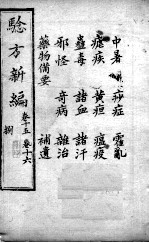 中暑 痧症 霍亂
瘧疾 黃疸 瘟疫
蠱毒 諸血 諸汗
邪怪 奇病 雜治
藥物備要 補遺
騐方新編 卷十五 卷十六 捌